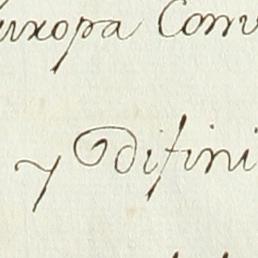 uropa Conv
y Difini